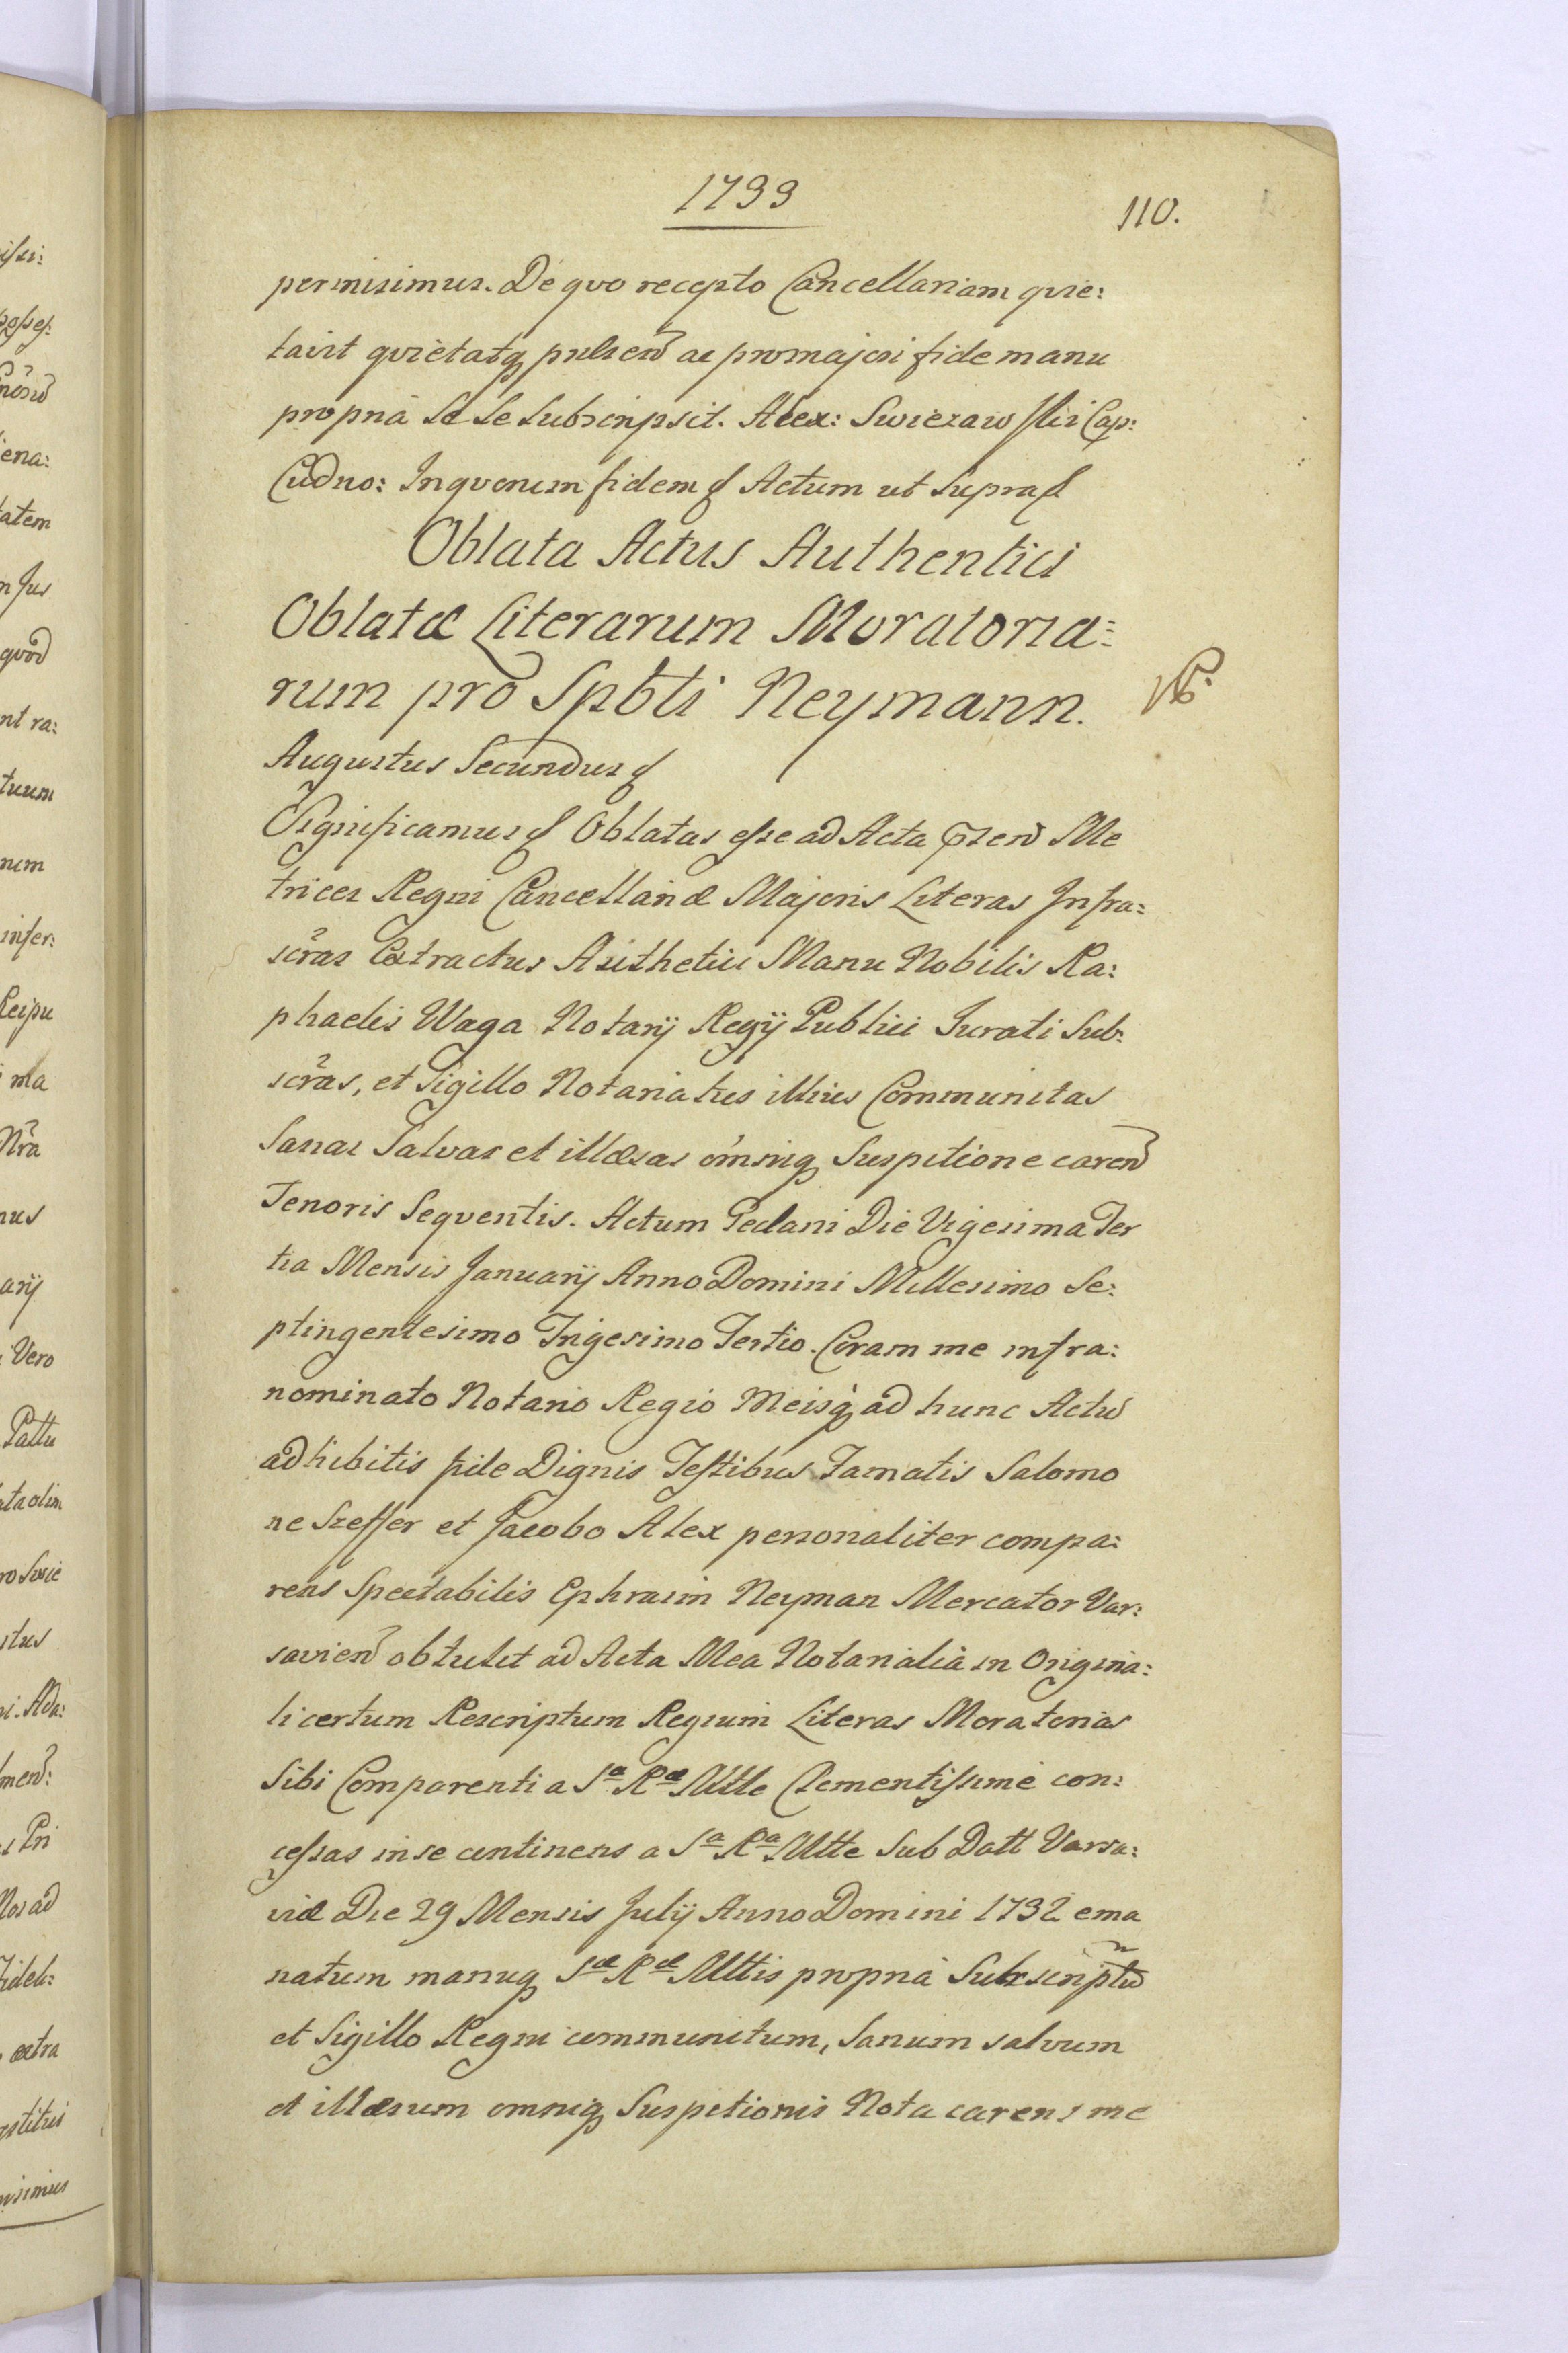 1733
110.
permisimus. De quo recepto Cancellariam quie:
tavit quietatq pulsen̄ ac pro majori fide manu
propria Se Se Subscripsit. Alex: Swiezawski Cap:
Cudno: In quorum fidem Actum ut Supra
Oblata Actus Authentici
Oblatæ Literarum Moratoria=
rum pro Spbti Neymann.
Augustus Secundus
Significamus Oblatas esse ad Acta p̄sen̄ Me
trices Regni Cancellariæ Majoris Literas Infra=
scr̃as Extractus Authetici Manu Nobilis Ra:
phaelis Waga Notarij Regij Publici Jurati Sub:
scr̃as, et Sigillo Notariatus illius Communitas
Sanas Salvas et illæsas omniq Suspitione caren̄
Tenoris Sequentis. Actum Die Vigesima Ter
tia Mensis Januarij Anno Domini Millesimo Se:
ptingentesimo Trigesimo Tertio. Coram me infra:
nominato Notario Regio Meisq ad hunc Actū
adhibitis fide Dignis Testibus Famatis Salomo
ne Szeffer et Jacobo Alex personaliter compa:
rens Spectabilis Ephraim Neyman Mercator Var:
savien̄ obtulit ad Acta Mea Notarialia in Origina:
li certum Rescriptum Regium Literas Moratorias
Sibi Comparenti a Sa Ræ Mtte Clementissime con:
cessas in se continens a Sa Ra Mtte Sub Datt Varsa:
viæ Die 29 Mensis Julij Anno Domini 1732 ema
natum manuq Sæ Ræ Mttis propria Subscriptū
et Sigillo Regni communitum, Sanum salvum
et illæsum omniq Suspitionis Nota carens me